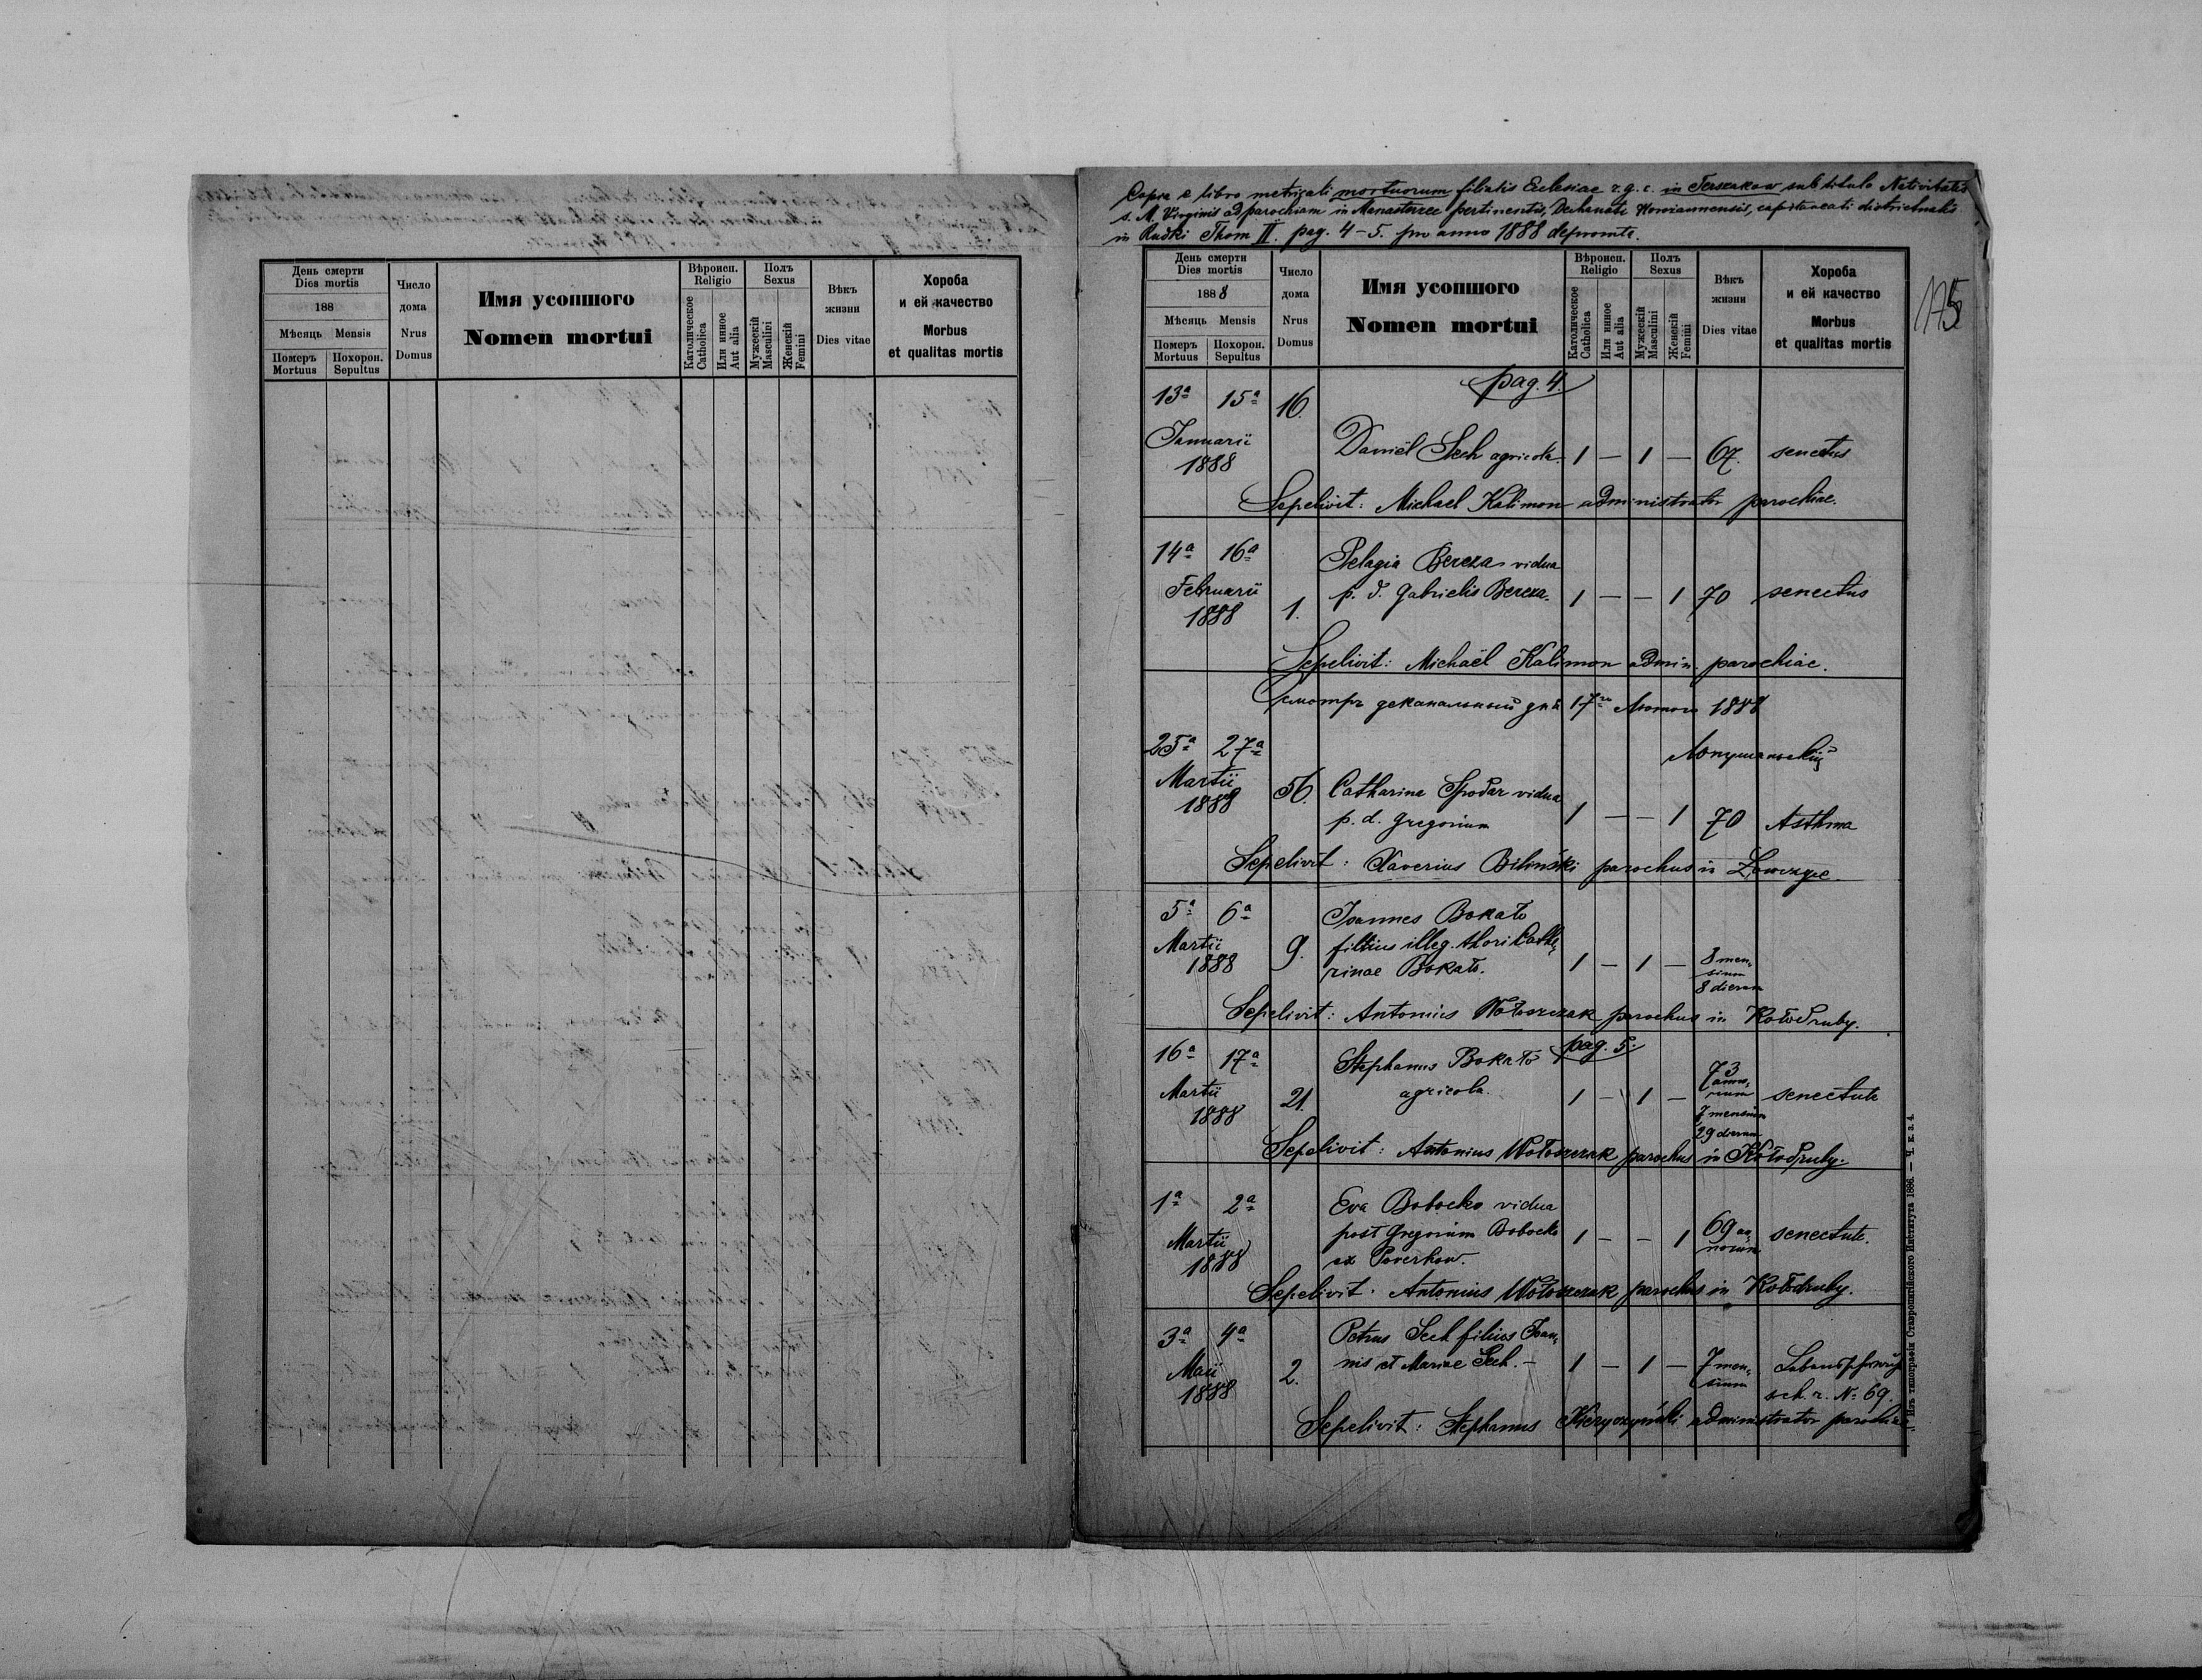 День смерти
Dies mortis
188
Мѣсяць Mensis
Померъ
Mortuus
Похорон.
Sepultus
Число
дома
Nrus
Domus
Имя усопшого
Nomen mortui
Вѣроисп.
Religio
Католическое
Catholica
Или инное
Aut alia
Полъ
Sexus
Мужескій
Masculini
Женскій
Femini
Вѣкъ
жизни
Dies vitae
Хороба
и ей качество
Morbus
et qualitas mortis
Copia e libro metricali mortuorum filialis Ecclesiae r. g. c. in Terszakow sub titulo Nativitatis
s. M. Virginis ad parochiam in Monasterzec pertinentis, Decanatus capitaneati districtualis
in Rudki Thom II. pag. 4-5. pro anno 1888 depromta.
День смерти
Dies mortis
1888
Мѣсяць Mensis
Померъ
Mortuus
Похорон.
Sepultus
Число
дома
Nrus
Domus
Имя усопшого
Nomen mortui
Вѣроисп.
Religio
Католическое
Catholica
Или инное
Aut alia
Полъ
Sexus
Мужескій
Masculini
Женскій
Femini
Вѣкъ
жизни
Dies vitae
Хороба
и ей качество
Morbus
et qualitas mortis
pag. 4.
13ª 15ª 16.
Januarii
1888
Daniël Sech agricola. 1 — 1 — 67. senectus
Sepelivit: Michael Kalimon administrator parochiae.
14ª 16ª Pelagia Bereza vidua
Februarii
1888 1. p. d. Gabrielis Bereza. 1 — — 1 70 senectus
Sepelivit: Michaël Kalimon admin. parochiae.
Смотръ деканальный дня 17го Лютого 1888
25ª 27ª
Martii
1888 56. Catharina Spodar vidua
p. d. Gregorium 1 — — 1 70 Asthma
Sepelivit: Xaverius Biliński parochus in
5ª 6ª Joannes Bokało
Martii
1888 9. filius illeg. thori Cathe,
rinae Bokało. 1 — 1 — 8 men,
sium
8 dierum
Sepelivit: Antonius Wołoszczak parochus in Kołodruby.
pag. 5.
16ª 17ª Stephanus Bokało
Martii
1888 21. agricola. 1 — 1 — 73
anno,
rum
7 mensium
29 dierum
senectute
Sepelivit: Antonius Wołoszczak parochus in Kołodruby.
1ª 2ª Eva Bobocko vidua
Martii
1888 post Gregorium Bobocko
ex Poverhow. 1 — — 1 69 an,
norum
senectute.
Sepelivit. Antonius Wołoszczak parochus in Kołodruby.
3ª 4ª Petrus Sech filius Joan,
Maii
1888 2. nis et Mariae Sech. — 1 — 1 — 7 men,
sium
sch. r. N: 69.
Sepelivit: Stephanus administrator parochiae
Изъ типографіи Ставропигійского Института 1886. — Ч. к. з. 4.